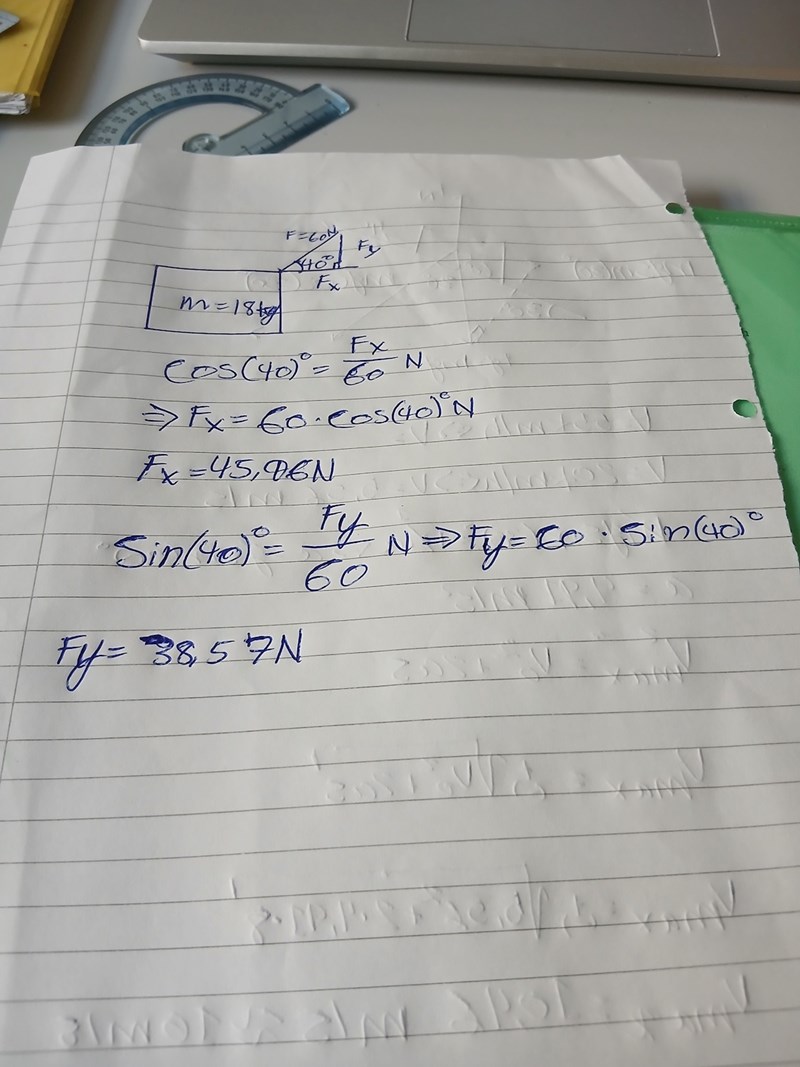 F=60N
Fy
40°
Fx
m=18kg
cos(40)°= Fx/60 N
⇒ Fx = 60·cos(40)°N
Fx = 45,96N
Sin(40)°= Fy/60 N ⇒ Fy = 60 · Sin(40)°
Fy = 38,57N